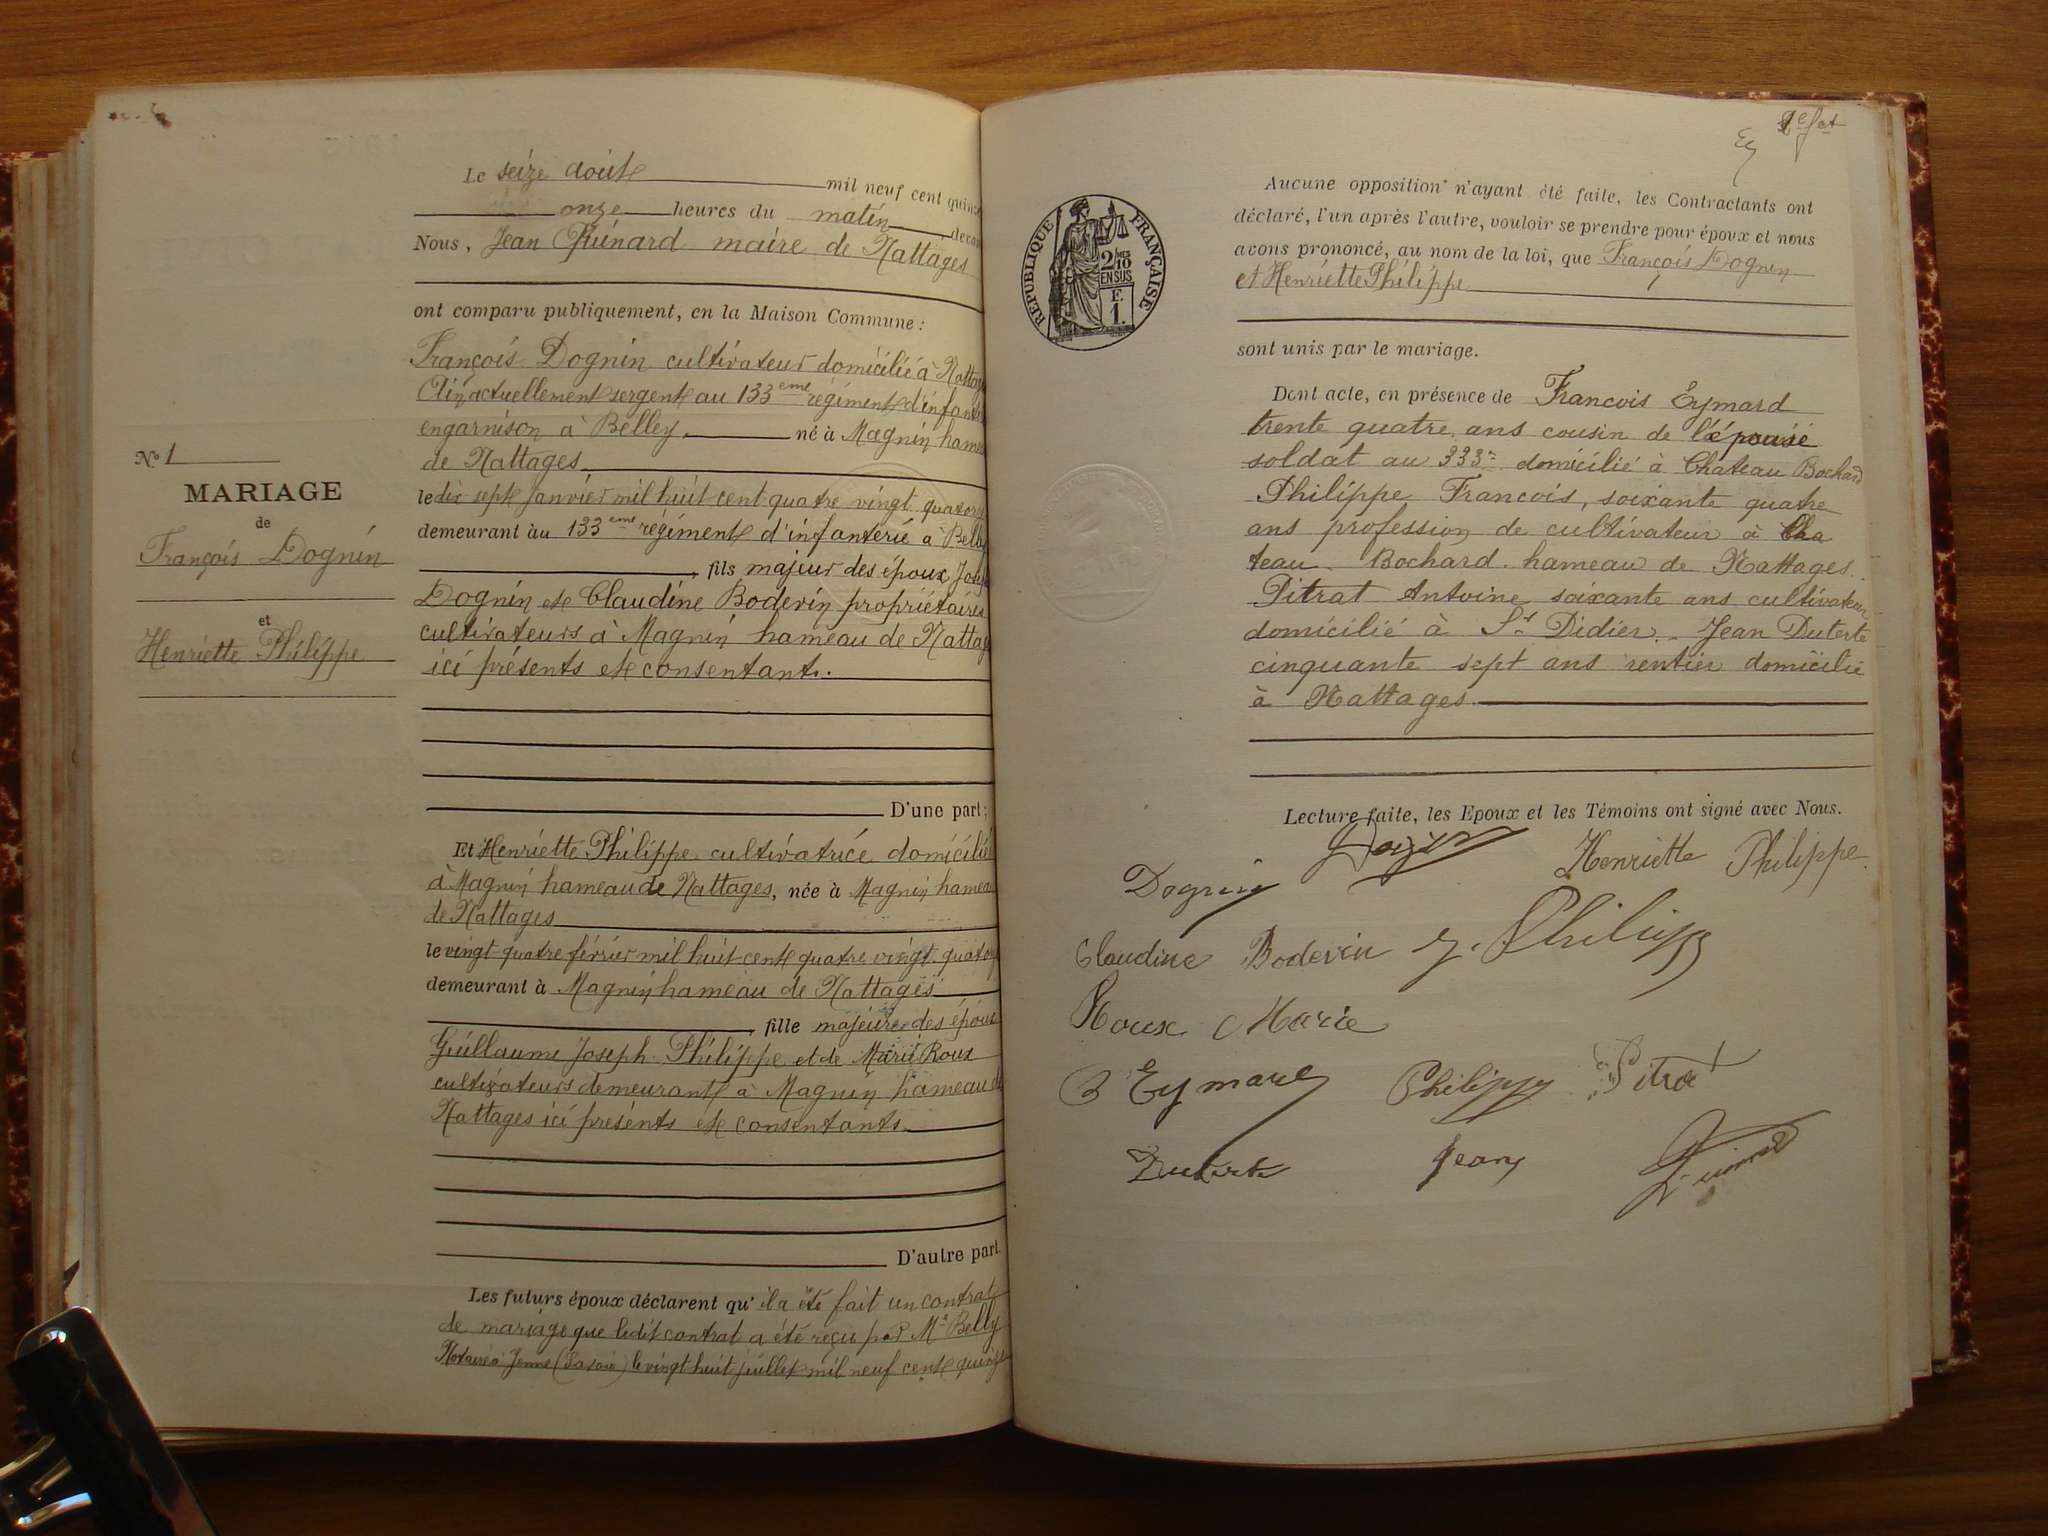 Le seize août mil neuf cent quinze
onze heures du matin devan
Nous, Jean Quinard maire de Nattages
ont comparu publiquement, en la Maison Commune :
François Dognin cultivateur domicilié à Nattag
(Ain) actuellement sergent au 133eme régiment d'infante
en garnison à Belley, né à Magnin hame
de Nattages
le dix sept janvier mil huit cent quatre vingt quatorze
demeurant au 133eme régiment d'infanterie à Belle
, fils majeur des époux Josep
Dognin et Claudine Boderin propriétaires
cultivateurs à Magnin hameau de Nattag
ici présents et consentants.
D'une part ;
Et Henriette Philippe cultivatrice domiciliée
à Magnin hameau de Nattages, née à Magnin hamea
de Nattages
le vingt quatre février mil huit cent quatre vingt quatorz
demeurant à Magnin hameau de Nattages
, fille majeure des époux
Guillaume Joseph Philippe et de Marie Roux
cultivateurs demeurant à Magnin hameau de
Nattages ici présents et consentants
D'autre part.
Les futurs époux déclarent qu'il a été fait un contrat
de mariage que ledit contrat a été reçu par Me Belly
Notaire à Yenne (Savoie) le vingt huit juillet mil neuf cent quinze
No 1
MARIAGE
de
François Dognin
et
Henriette Philippe
RÉPUBLIQUE FRANÇAISE
2/10
EN SUS
F.
1.
Aucune opposition n'ayant été faite, les Contractants ont
déclaré, l'un après l'autre, vouloir se prendre pour époux et nous
avons prononcé, au nom de la loi, que François Dognin
et Henriette Philippe
sont unis par le mariage.
Dont acte, en présence de Francois Eymard
trente quatre ans cousin de l'épouse
soldat au 333e domicilié à Chateau Bochard
Philippe Francois, soixante quatre
ans profession de cultivateur à Cha
teau Bochard hameau de Nattages.
Pitrat Antoine soixante ans cultivateur
domicilié à St Didier. Jean Duterte
cinquante sept ans rentier domicilié
à Nattages
Lecture faite, les Epoux et les Témoins ont signé avec Nous.
Dognin
Dognin Henriette Philippe
Claudine Boderin J. Philippe
Roux Marie
Eymard Philippe Pitrat
Duterte Jean Quinard